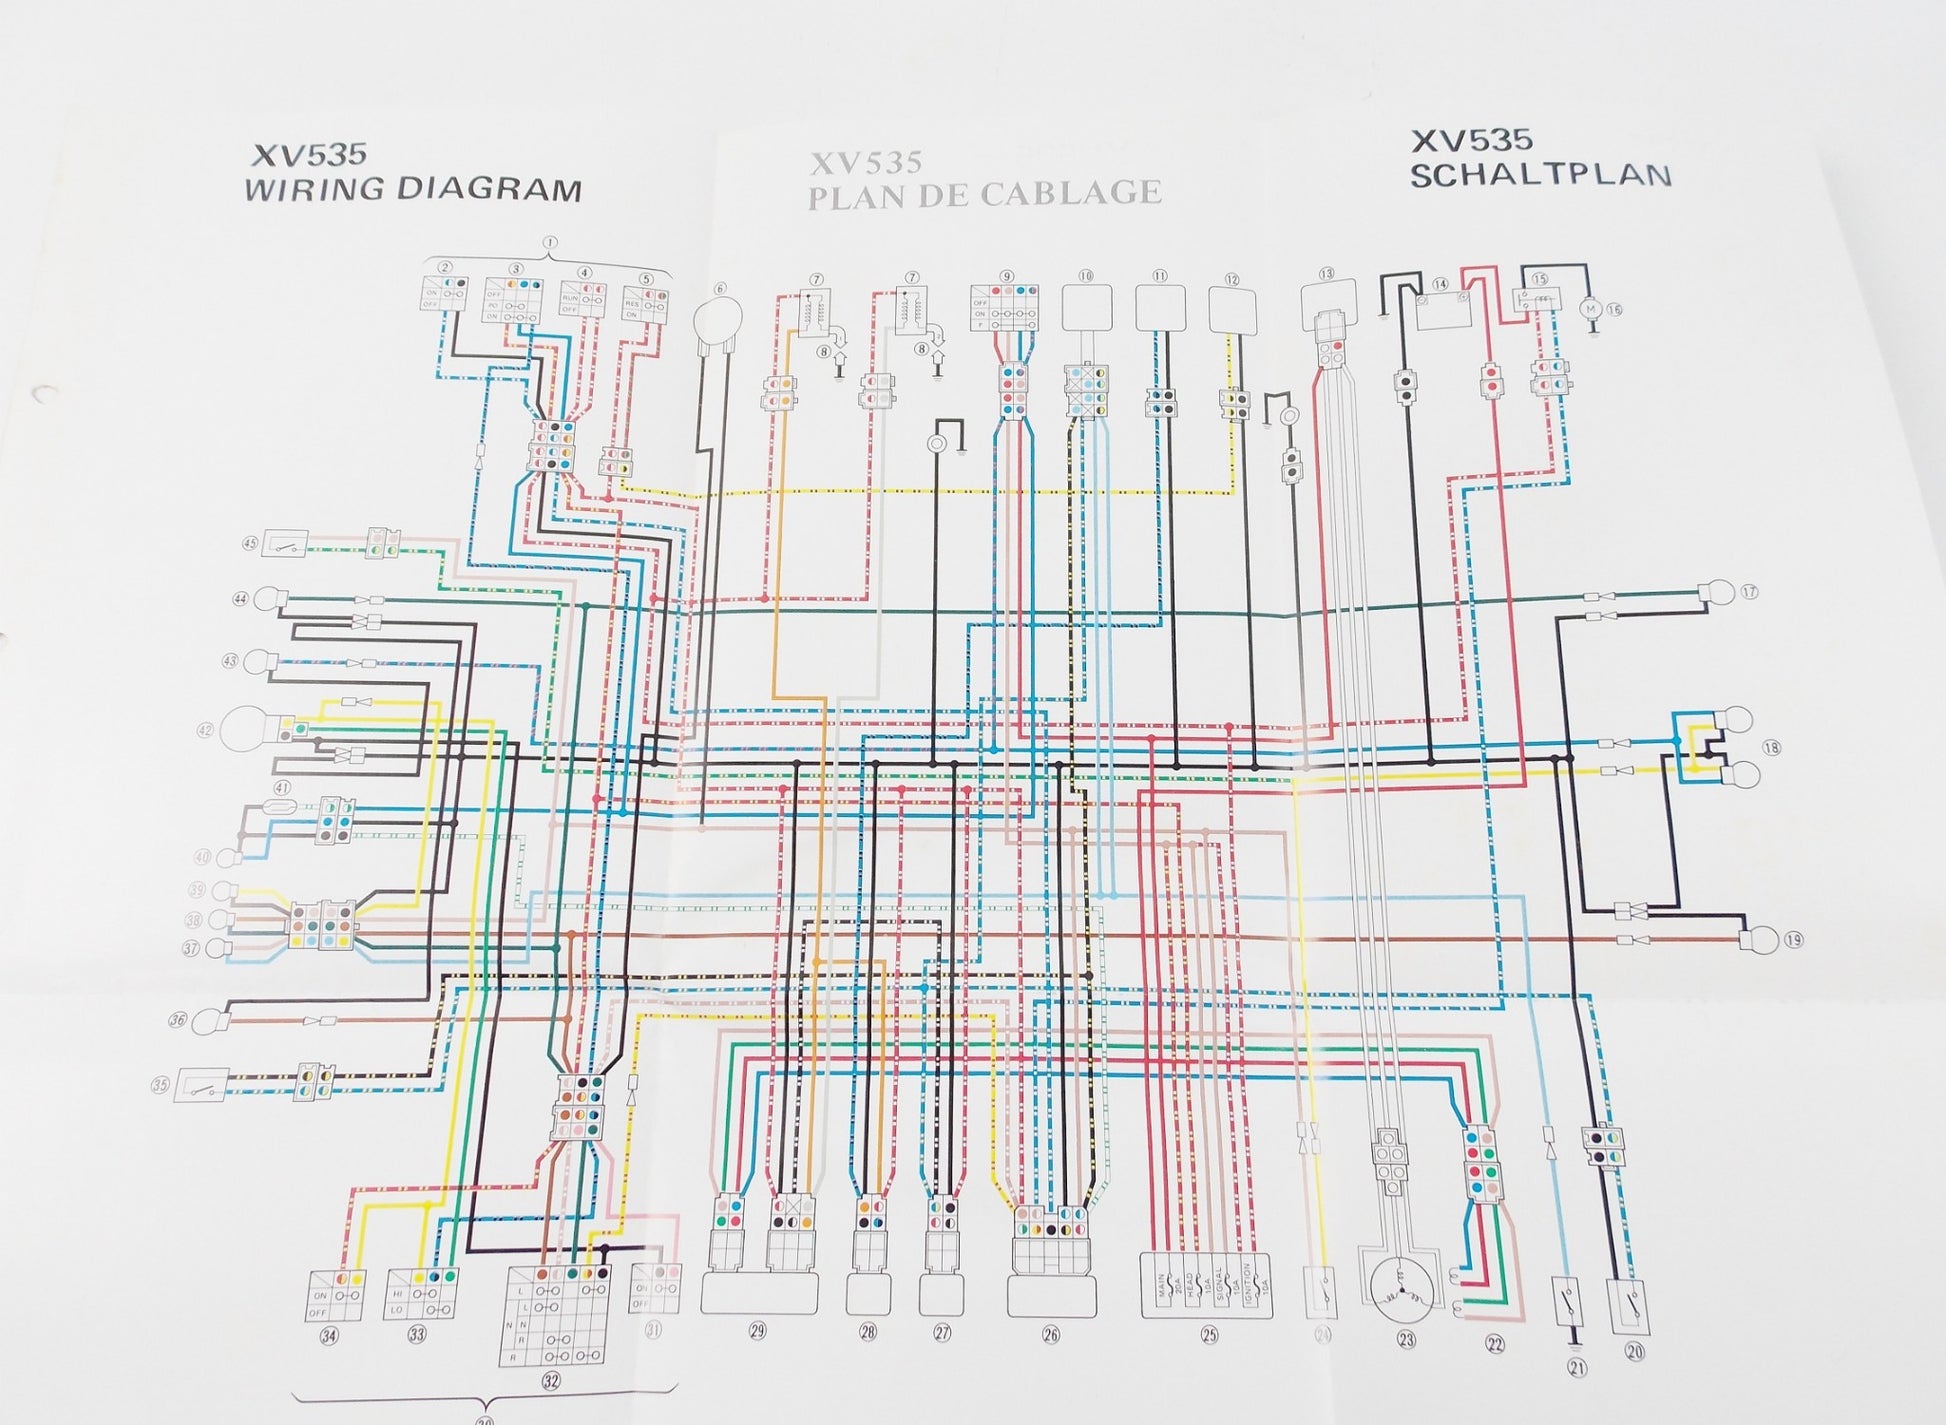 XV535
WIRING DIAGRAM
XV535
PLAN DE CABLAGE
XV535
SCHALTPLAN
①
② ③ ④ ⑤ ⑥ ⑦ ⑦ ⑨ ⑩ ⑪ ⑫ ⑬ ⑭ ⑮ ⑯
ON
OFF
OFF
PO
ON
RUN
OFF
RES
ON
OFF
ON
P
M
⑧ ⑧
㊺
㊹ ⑰
㊸
㊷ ⑱
㊶
㊵
㊴
㊳
㊲ ⑲
㊱
㉟
ON
OFF
HI
LO
L
L
N N
R
R
ON
OFF
MAIN 20A
HEAD 10A
SIGNAL 10A
IGNITION 10A
㉞ ㉝ ㉜ ㉛ ㉙ ㉘ ㉗ ㉖ ㉕ ㉔ ㉓ ㉒ ㉑ ⑳
㉚